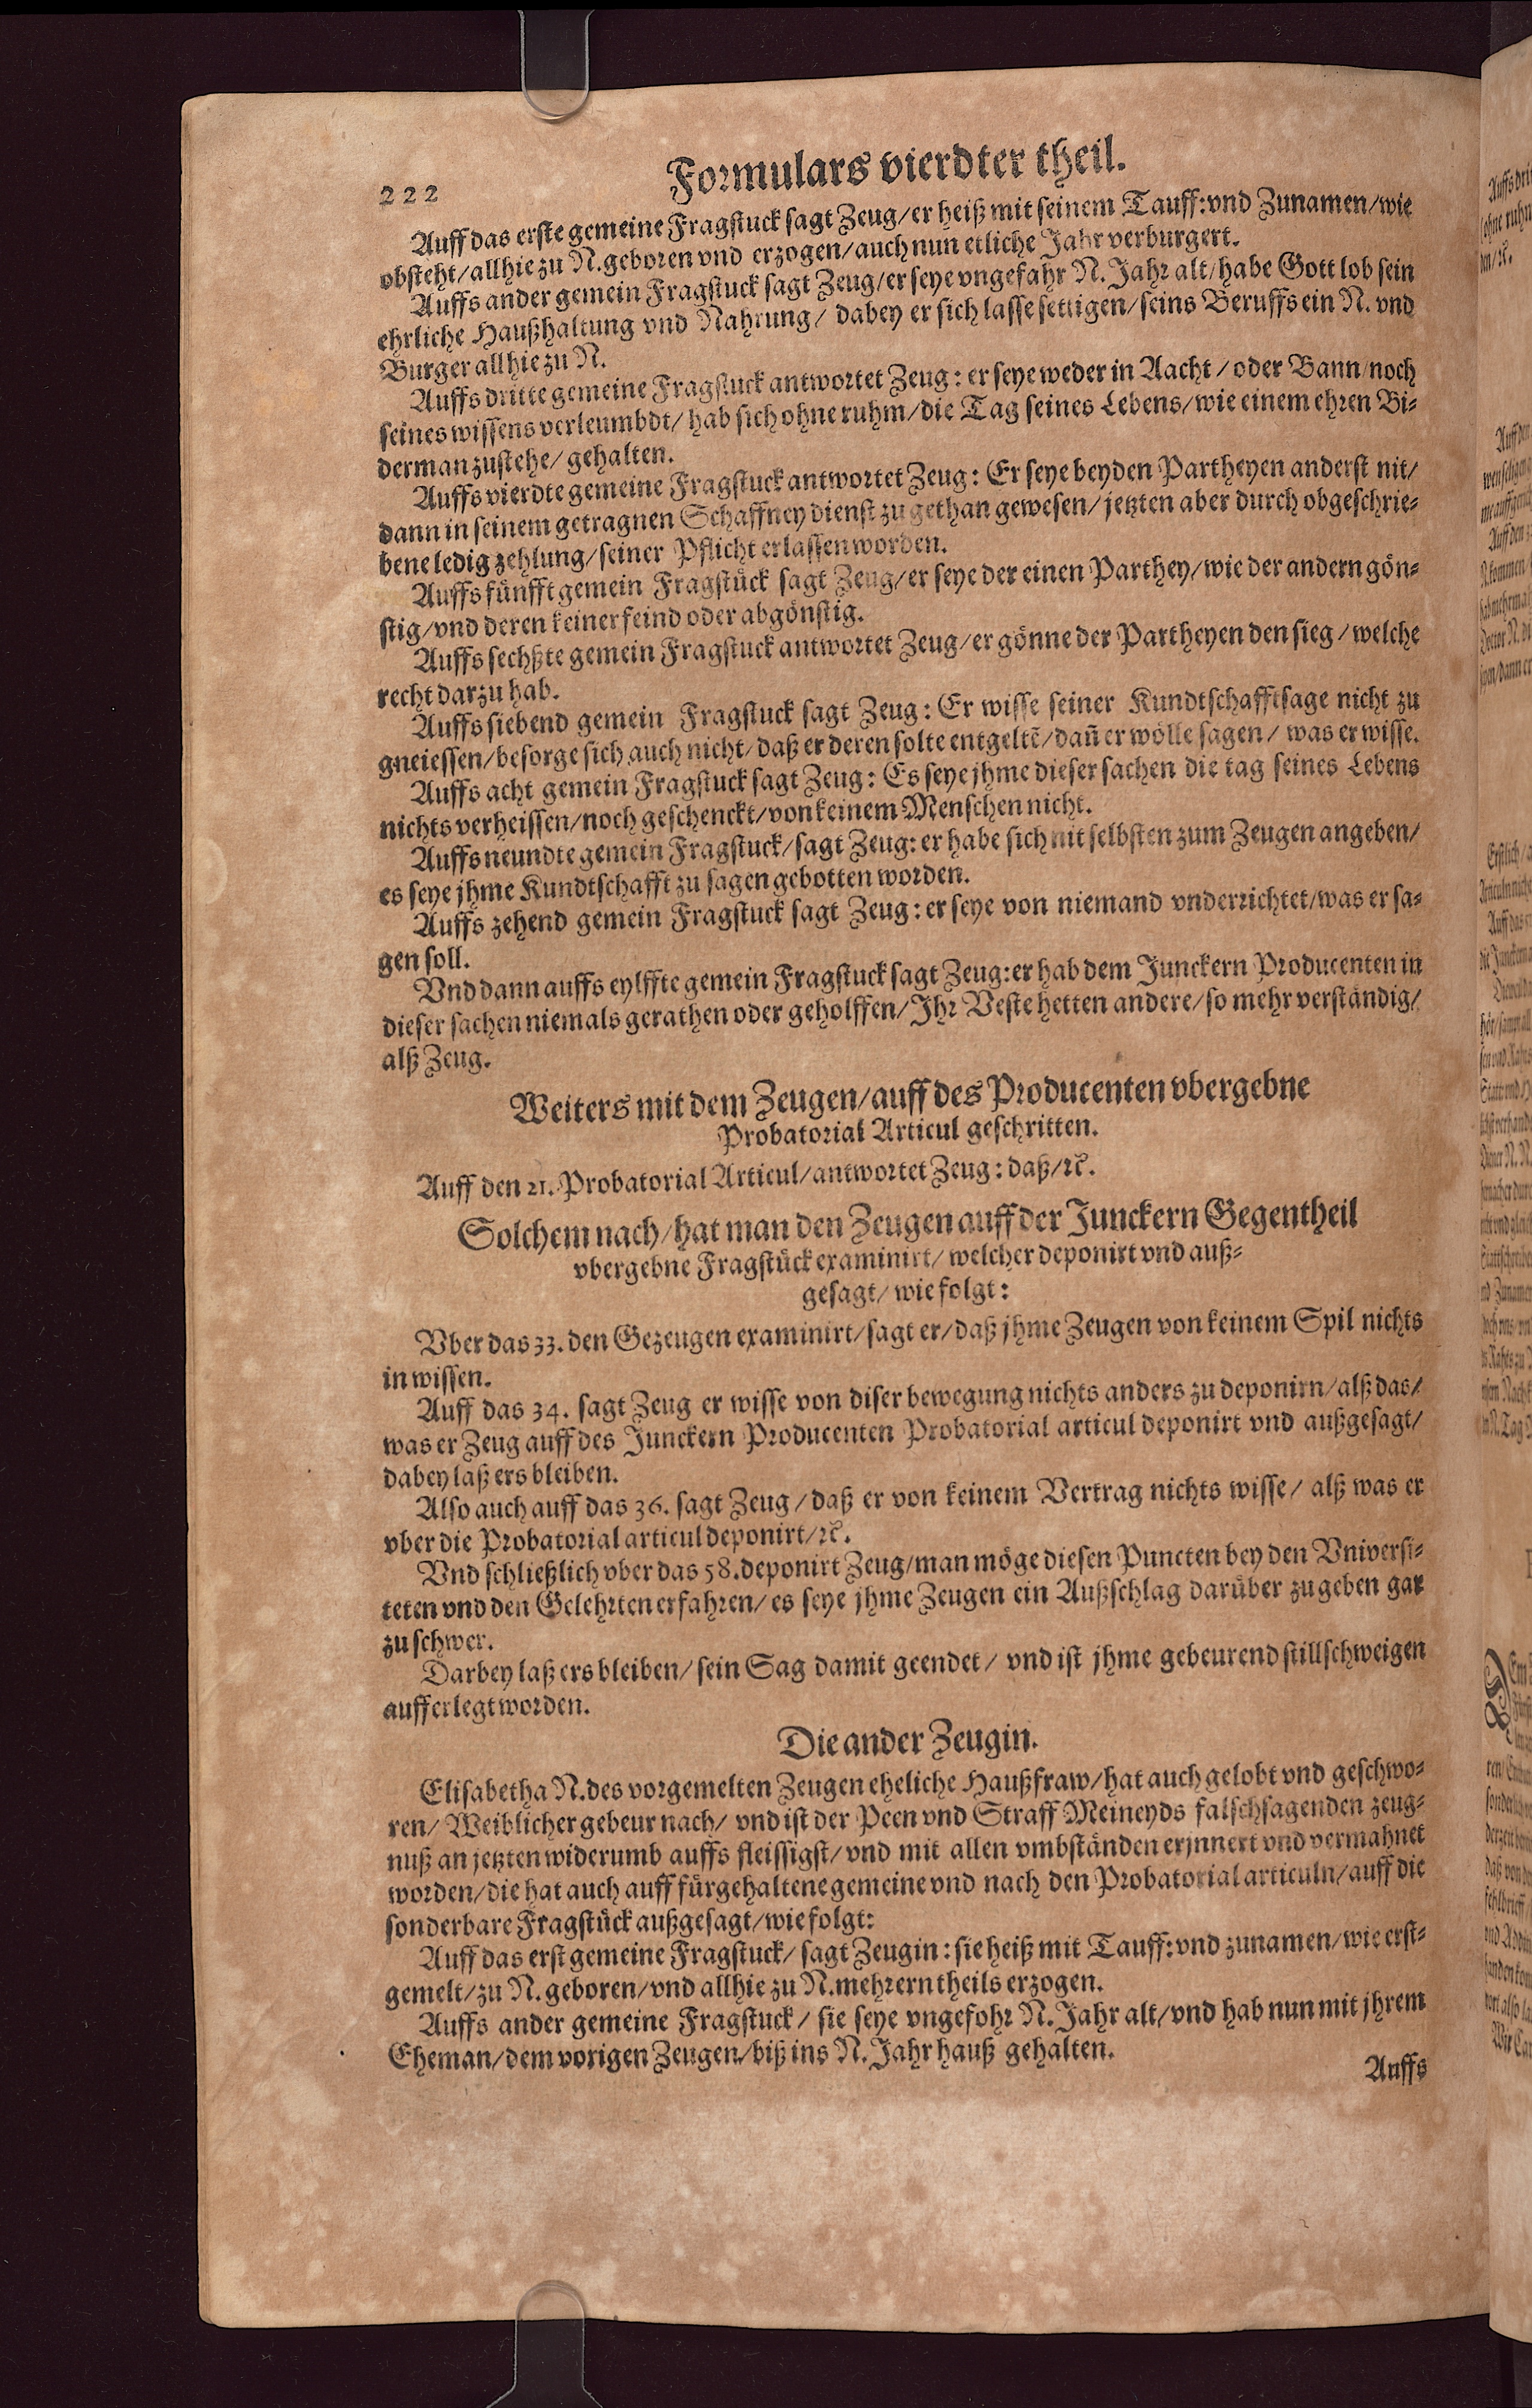 222
Formulars vierdter theil.
Auff das erste gemeine Fragstuck sagt Zeug/er heiß mit seinem Tauff:vnd Zunamen/wie
obsteht/allhie zu N.geboren vnd erzogen/auch nun etliche Jahr verburgert.
Auffs ander gemein Fragstuck sagt Zeug/er seye vngefahr N. Jahr alt/habe Gott lob sein
ehrliche Haußhaltung vnd Nahrung/ dabey er sich lasse settigen/seins Beruffs ein N. vnd
Burger allhie zu N.
Auffs dritte gemeine Fragstuck antwortet Zeug: er seye weder in Aacht/oder Bann/noch
seines wissens verleumbdt/ hab sich ohne ruhm/die Tag seines Lebens/wie einem ehren Bi-
derman zustehe/ gehalten.
Auffs vierdte gemeine Fragstuck antwortet Zeug: Er seye beyden Partheyen anderst nit/
dann in seinem getragnen Schaffney dienst zu gethan gewesen/jetzten aber durch obgeschrie-
bene ledig zehlung/seiner Pflicht erlassen worden.
Auffs fünfft gemein Fragstück sagt Zeug/er seye der einen Parthey/wie der andern gön-
stig/vnd deren keiner feind oder abgönstig.
Auffs sechßte gemein Fragstuck antwortet Zeug/er gönne der Partheyen den sieg/welche
recht darzu hab.
Auffs siebend gemein Fragstuck sagt Zeug: Er wisse seiner Kundtschafftsage nicht zu
gneiessen/besorge sich auch nicht/daß er deren solte entgeltē/dañ er wölle sagen/ was er wisse.
Auffs acht gemein Fragstuck sagt Zeug: Es seye jhme dieser sachen die tag seines Lebens
nichts verheissen/noch geschenckt/von keinem Menschen nicht.
Auffs neundte gemein Fragstuck/sagt Zeug: er habe sich nit selbsten zum Zeugen angeben/
es seye jhme Kundtschafft zu sagen gebotten worden.
Auffs zehend gemein Fragstuck sagt Zeug: er seye von niemand vnderrichtet/was er sa-
gen soll.
Vnd dann auffs eylffte gemein Fragstuck sagt Zeug:er hab dem Junckern Producenten in
dieser sachen niemals gerathen oder geholffen/Ihr Veste hetten andere/so mehr verständig/
alß Zeug.
Weiters mit dem Zeugen/auff des Producenten vbergebne
Probatorial Articul geschritten.
Auff den 21. Probatorial Articul/antwortet Zeug: daß/ꝛc.
Solchem nach/hat man den Zeugen auff der Junckern Gegentheil
vbergebne Fragstück examinirt/welcher deponirt vnd auß-
gesagt/ wie folgt:
Vber das 33. den Gezeugen examinirt/sagt er/daß jhme Zeugen von keinem Spil nichts
in wissen.
Auff das 34. sagt Zeug er wisse von diser bewegung nichts anders zu deponirn/alß das/
was er Zeug auff des Junckern Producenten Probatorial articul deponirt vnd außgesagt/
dabey laß ers bleiben.
Also auch auff das 36. sagt Zeug/daß er von keinem Vertrag nichts wisse/ alß was er
vber die Probatorial articul deponirt/ꝛc.
Vnd schließlich vber das 58.deponirt Zeug/man möge diesen Puncten bey den Vniversi-
teten vnd den Gelehrten erfahren/es seye jhme Zeugen ein Außschlag darüber zu geben gar
zu schwer.
Darbey laß ers bleiben/ sein Sag damit geendet/ vnd ist jhme gebeurend stillschweigen
aufferlegt worden.
Die ander Zeugin.
Elisabetha N.des vorgemelten Zeugen eheliche Haußfraw/hat auch gelobt vnd geschwo-
ren/ Weiblicher gebeur nach/ vnd ist der Peen vnd Straff Meineyds falschsagenden zeug-
nuß an jetzten widerumb auffs fleissigst/vnd mit allen vmbständen erjnnert vnd vermahnet
worden/die hat auch auff fürgehaltene gemeine vnd nach den Probatorial articuln/auff die
sonderbare Fragstück außgesagt/wie folgt:
Auff das erst gemeine Fragstuck/ sagt Zeugin: sie heiß mit Tauff:vnd zunamen/wie erst-
gemelt/zu N. geboren/vnd allhie zu N.mehrern theils erzogen.
Auffs ander gemeine Fragstuck/ sie seye vngefohr N. Jahr alt/vnd hab nun mit jhrem
Eheman/dem vorigen Zeugen/biß ins N. Jahr hauß gehalten.
Auffs